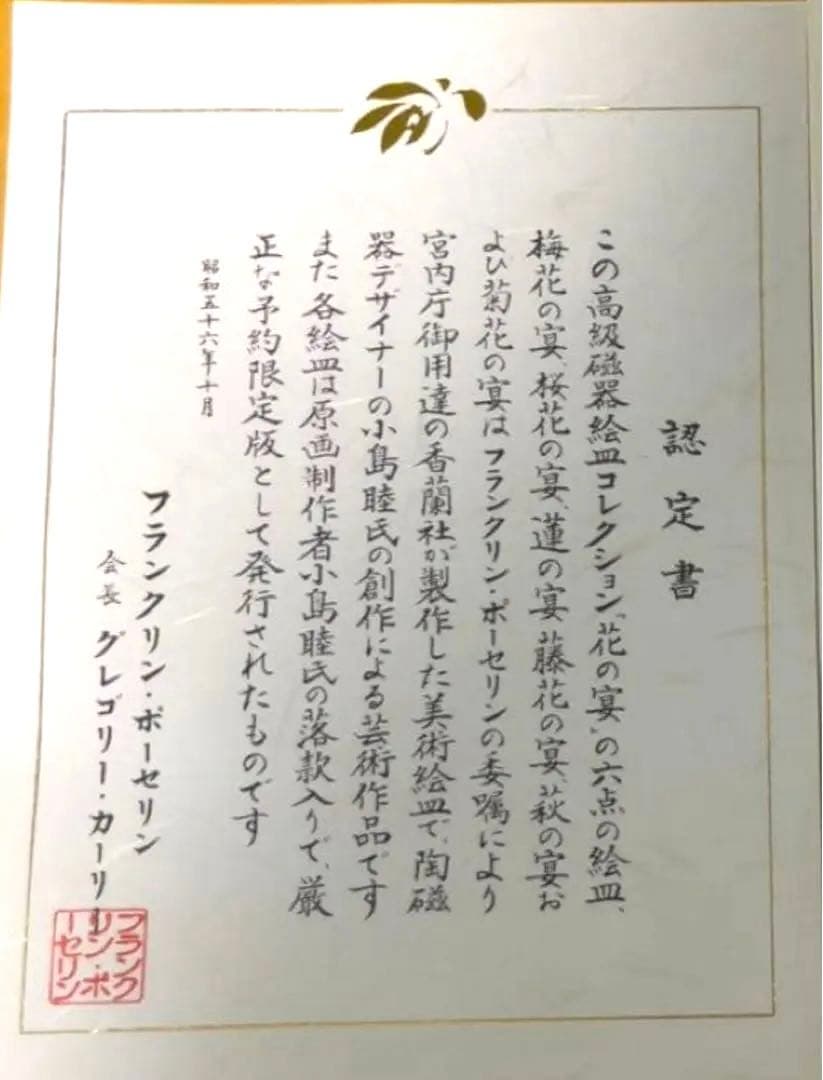 認定書
この高級磁器絵皿コレクション「花の宴」の六点の絵皿、
梅花の宴、桜花の宴、蓮の宴、藤花の宴、萩の宴お
よび菊花の宴はフランクリン・ポーセリンの委嘱により
宮内庁御用達の香蘭社が製作した美術絵皿で、陶磁
器デザイナーの小島睦氏の創作による芸術作品です
また各絵皿は原画制作者小島睦氏の落款入りで、厳
正な予約限定版として発行されたものです
昭和五十六年十月
フランクリン・ポーセリン
会長 グレゴリー・カーリー
フランク
リン・ポ
ーセリン